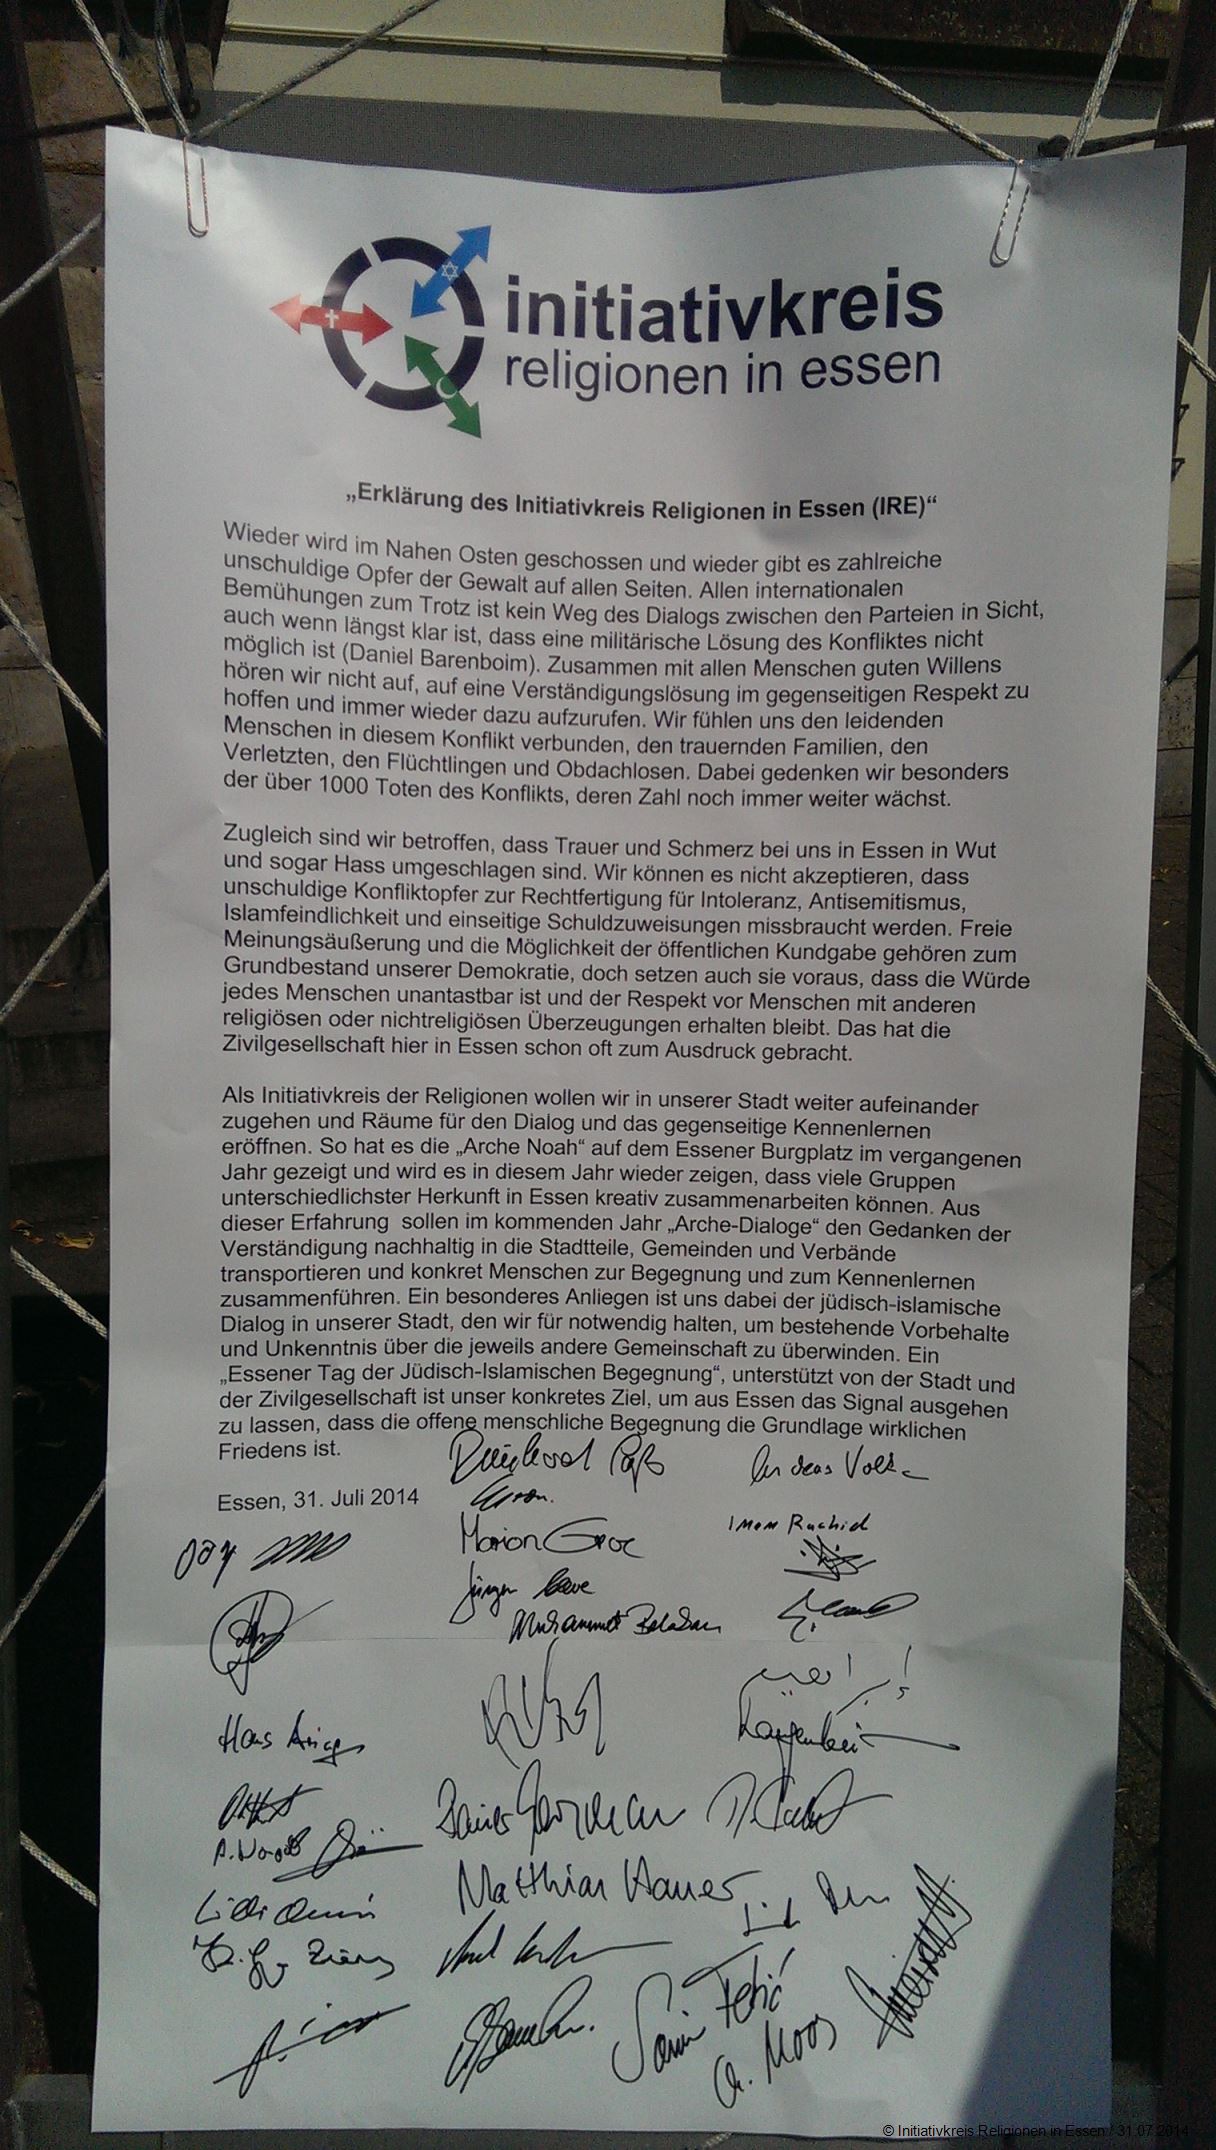 initiativkreis
religionen in essen
„Erklärung des Initiativkreis Religionen in Essen (IRE)“
Wieder wird im Nahen Osten geschossen und wieder gibt es zahlreiche
unschuldige Opfer der Gewalt auf allen Seiten. Allen internationalen
Bemühungen zum Trotz ist kein Weg des Dialogs zwischen den Parteien in Sicht,
auch wenn längst klar ist, dass eine militärische Lösung des Konfliktes nicht
möglich ist (Daniel Barenboim). Zusammen mit allen Menschen guten Willens
hören wir nicht auf, auf eine Verständigungslösung im gegenseitigen Respekt zu
hoffen und immer wieder dazu aufzurufen. Wir fühlen uns den leidenden
Menschen in diesem Konflikt verbunden, den trauernden Familien, den
Verletzten, den Flüchtlingen und Obdachlosen. Dabei gedenken wir besonders
der über 1000 Toten des Konflikts, deren Zahl noch immer weiter wächst.
Zugleich sind wir betroffen, dass Trauer und Schmerz bei uns in Essen in Wut
und sogar Hass umgeschlagen sind. Wir können es nicht akzeptieren, dass
unschuldige Konfliktopfer zur Rechtfertigung für Intoleranz, Antisemitismus,
Islamfeindlichkeit und einseitige Schuldzuweisungen missbraucht werden. Freie
Meinungsäußerung und die Möglichkeit der öffentlichen Kundgabe gehören zum
Grundbestand unserer Demokratie, doch setzen auch sie voraus, dass die Würde
jedes Menschen unantastbar ist und der Respekt vor Menschen mit anderen
religiösen oder nichtreligiösen Überzeugungen erhalten bleibt. Das hat die
Zivilgesellschaft hier in Essen schon oft zum Ausdruck gebracht.
Als Initiativkreis der Religionen wollen wir in unserer Stadt weiter aufeinander
zugehen und Räume für den Dialog und das gegenseitige Kennenlernen
eröffnen. So hat es die „Arche Noah“ auf dem Essener Burgplatz im vergangenen
Jahr gezeigt und wird es in diesem Jahr wieder zeigen, dass viele Gruppen
unterschiedlichster Herkunft in Essen kreativ zusammenarbeiten können. Aus
dieser Erfahrung sollen im kommenden Jahr „Arche-Dialoge“ den Gedanken der
Verständigung nachhaltig in die Stadtteile, Gemeinden und Verbände
transportieren und konkret Menschen zur Begegnung und zum Kennenlernen
zusammenführen. Ein besonderes Anliegen ist uns dabei der jüdisch-islamische
Dialog in unserer Stadt, den wir für notwendig halten, um bestehende Vorbehalte
und Unkenntnis über die jeweils andere Gemeinschaft zu überwinden. Ein
„Essener Tag der Jüdisch-Islamischen Begegnung“, unterstützt von der Stadt und
der Zivilgesellschaft ist unser konkretes Ziel, um aus Essen das Signal ausgehen
zu lassen, dass die offene menschliche Begegnung die Grundlage wirklichen
Friedens ist.
Essen, 31. Juli 2014
Imam Rachid
Marion
Jürgen
Muhammet
Hans
Matthias Hauer
Samir Fetić
A. Moos
© Initiativkreis Religionen in Essen / 31.07.2014